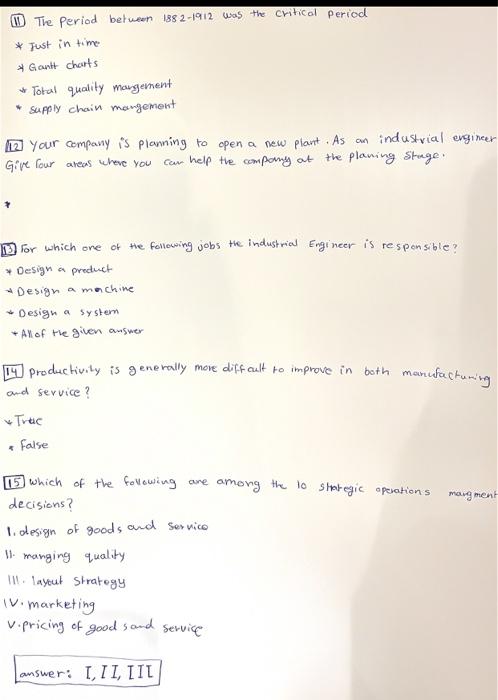 11 The Period between 1882-1912 was the critical period
* Just in time
* Gantt charts
* Total quality mangement
* Supply chain mangement
12 Your company is planning to open a new plant. As an industrial engineer
Give four areas where you can help the company at the planing stage.
*
13 for which one of the following jobs the industrial Engineer is responsible?
* Design a product
* Design a machine
* Design a system
* All of the given answer
14 productivity is generally more difficult to improve in both manufacturing
and service?
* True
* False
15 which of the following are among the 10 strategic operations mangment
decisions?
I. design of goods and service
II. manging quality
III. layout strategy
IV. marketing
V. pricing of goods and service
answer: I, II, III